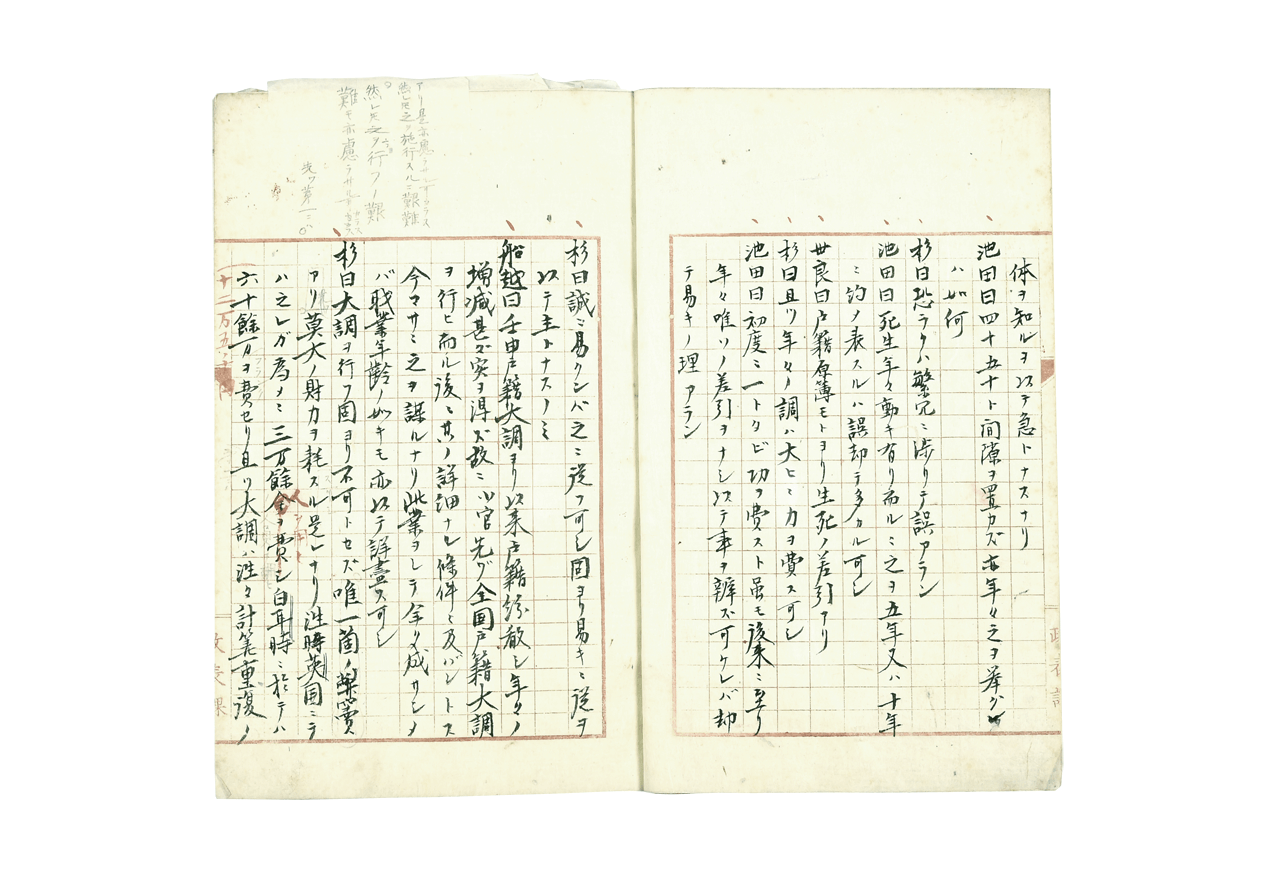 体ヲ知ルヲ以テ急トナスナリ
池田曰四十五十ト間隙ヲ置カズ毎年々之ヲ挙グル
ハ如何
杉曰恐ラクハ繁冗ニ渉リテ誤アラン
池田曰死生年々動キ有リ而ルニ之ヲ五年又ハ十年
ニ約ノ表スルハ誤却テ多カル可シ
世良曰戸籍原簿モトヨリ生死ノ差引アリ
杉曰且ツ年々ノ調ハ大ヒニ力ヲ費ス可シ
池田曰初度ニ一トタビ功ヲ費スト雖モ後来ニ至リ
年々唯ソノ差引ヲナシ以テ事ヲ辨ズ可ケレバ却
テ易キノ理アラン
杉曰誠ニ易クンバ之ニ従フ可シ固ヨリ易キニ従ヲ
以テ主トナスノミ
船越曰壬申戸籍大調ヨリ以来戸籍紛散シ年々ノ
増減甚ダ実ヲ得ズ故ニ小官先ヅ全国戸籍大調
ヲ行ヒ而ル後ニ其ノ詳細ナル條件ニ及バントス
今マサニ之ヲ謀ルナリ此業ヲシテ全ク成サシメ
バ職業年齢ノ如キモ亦以テ詳盡ス可シ
杉曰大調ヲ行フ固ヨリ不可トセズ唯一箇ノ
アリ莫大ノ財力ヲ耗スル是レナリ往時英国ニテ
ハ之レガ為メニ三万餘金ヲ費シ白耳時ニ於テハ
六十餘万ヲ費セリ且ツ大調ハ往々計筭重復ノ
アリ是亦慮ラサル可ラス
然レ𪜈之ヲ施行スルニ艱難
然レ𪜈之ヲ行フノ艱
難モ亦慮ラサル
先ツ第一ニ